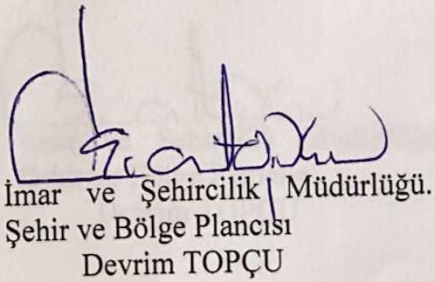 İmar ve Şehircilik Müdürlüğü.
Şehir ve Bölge Plancısı
Devrim TOPÇU